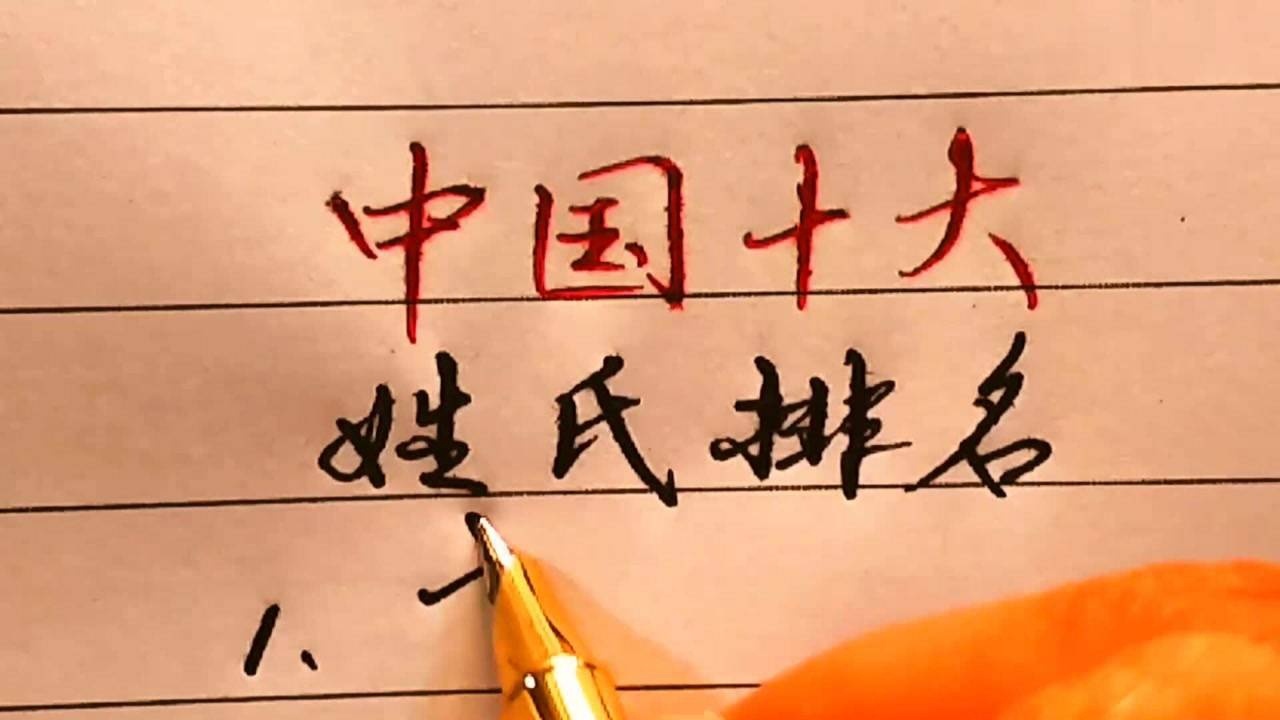 中国十大
姓氏排名
1、